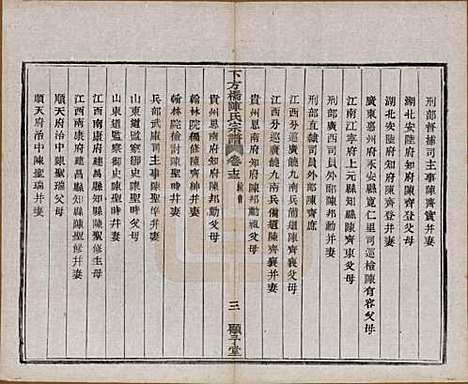 刑部督捕司主事陳齊實并妻
湖北安陸府知府陳齊登并妻
湖北安陸府知府陳齊登父母
廣東惠州府永安縣寬仁里司巡檢陳有容父母
江南江寧府上元縣知縣陳齊東父母
刑部廣西司員外郎陳邦勳并妻
刑部直隸司員外郎陳齊庶
江西分巡廣饒九南兵備道陳齊襄并妻
江西分巡廣饒九南兵備道陳齊襄父母
貴州思南府知府陳邦勳并妻
下方橋陳氏宗譜 卷十五 三 顯承堂
貴州思南府知府陳邦勳父母
翰林院編修陳齊紳并妻
翰林院檢討陳聖時并妻
兵部武庫司主事陳聖
山東道監察御史陳聖時并妻
山東道監察御史陳聖時父母
江西南康府都昌縣知縣陳聖修并妻
江西南康府都昌縣知縣陳聖修生母
順天府治中陳聖瑞父母
順天府治中陳聖瑞并妻